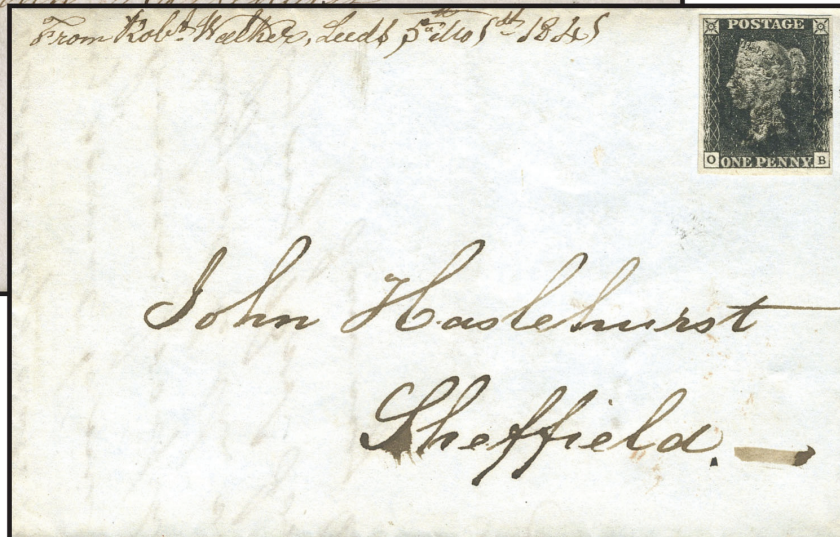 From Robt Walker, Leeds 5th Mo 1st 1845
POSTAGE
O ONE PENNY B
John Haslehurst
Sheffield.